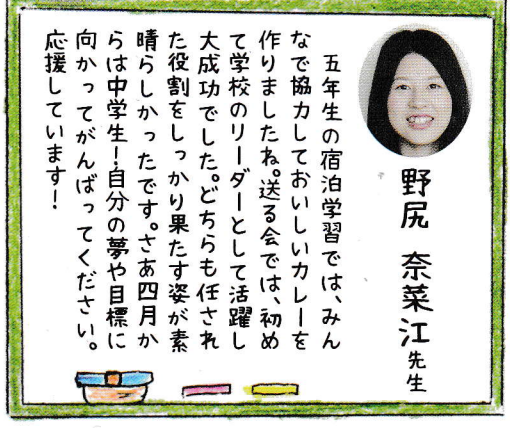 野尻 奈菜江先生
五年生の宿泊学習では、みん
なで協力しておいしいカレーを
作りましたね。送る会では、初め
て学校のリーダーとして活躍し
大成功でした。どちらも任され
た役割をしっかり果たす姿が素
晴らしかったです。さあ四月か
らは中学生！自分の夢や目標に
向かってがんばってください。
応援しています！